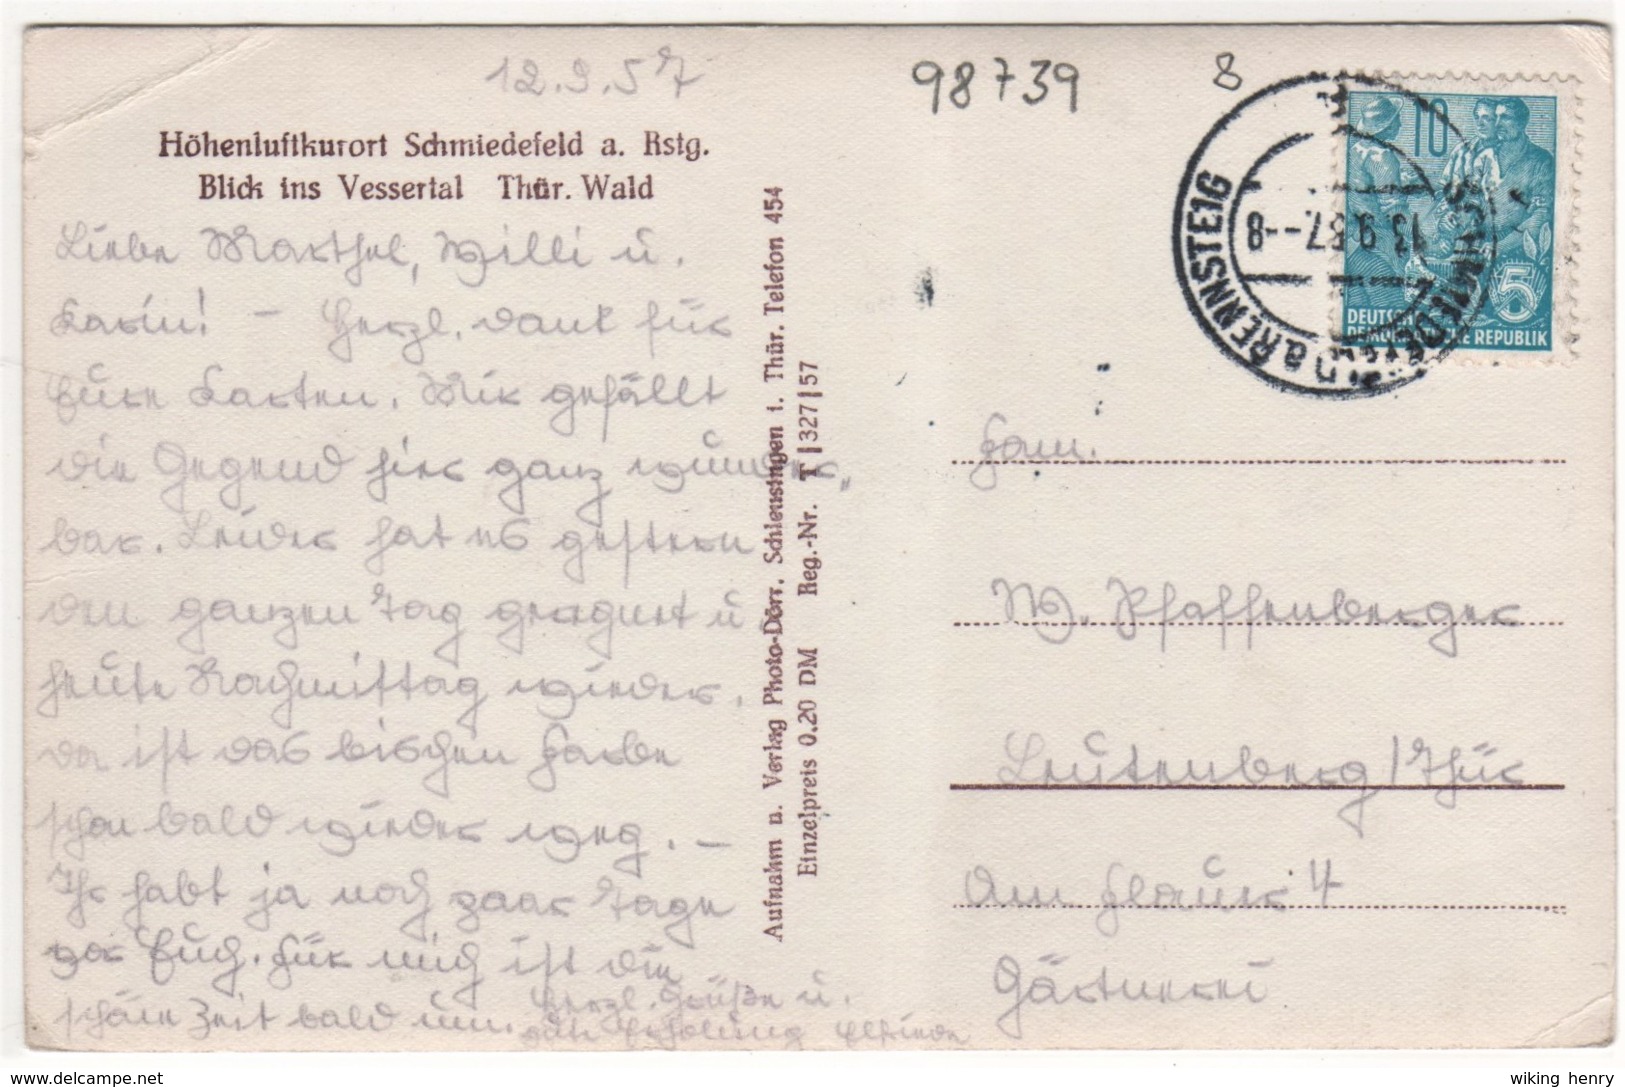 12.9.57
98739
8
Höhenluftkurort Schmiedefeld a. Rstg.
Blick ins Vessertal Thür. Wald
Liebe Marthel, Willi u.
Karin! – Herzl. Dank für
Eure Karten. Mir gefällt
die Gegend hier ganz wunder„
bar. Leider hat es gestern
den ganzen Tag geregnet u.
heute Nachmittag wieder.
Da ist das bischen Farbe
schon bald wieder weg. –
Ihr habt ja noch paar Tage
vor Euch. Für mich ist die
schöne Zeit bald um. Herzl. Grüße u.
gute Erholung Elfriede
Aufnahm u. Verlag Photo-Dörr, Schleusingen i. Thür. Telefon 454
Einzelpreis 0,20 DM Reg.-Nr. T|327|57
SCHMIEDEFELD a RENNSTEIG
13.9.57.--8
10
5
DEUTSCHE
DEMOKRATISCHE REPUBLIK
Fam.
W. Pfaffenberger
Leutenberg / Thür
Am Ilmufer 4
Gärtnerei
www.delcampe.net
wiking henry